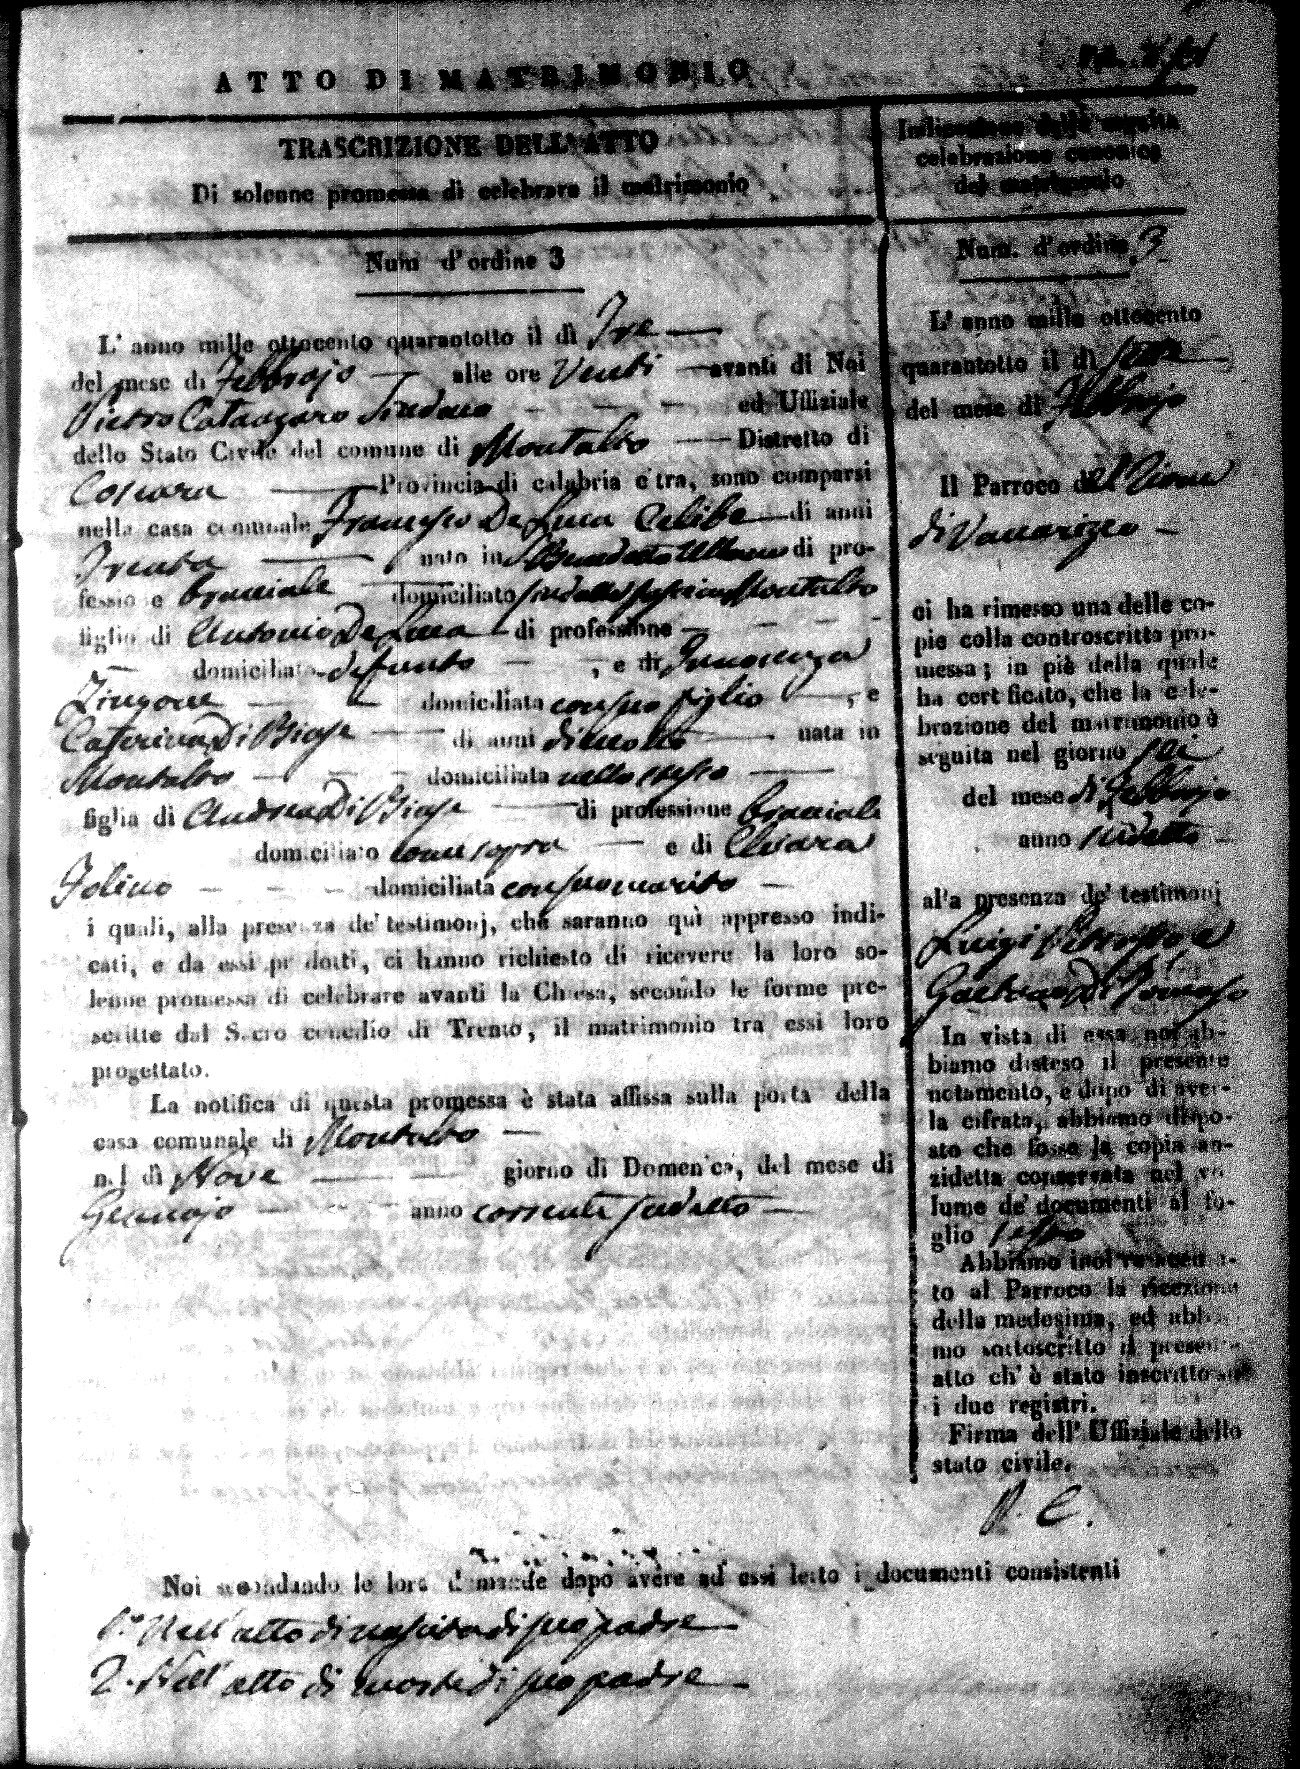 ATTO DI MATRIMONIO
TRASCRIZIONE DELL'ATTO
Di solenne promessa di celebrare il matrimonio
Num d'ordine 3
L'anno mille ottocento quarantotto il dì Tre
del mese di Febbrajo alle ore Venti avanti di Noi
Pietro Catanzaro Sindaco ed Uffiziale
dello Stato Civile del comune di Montalto Distretto di
Cosenza Provincia di calabria citra, sono comparsi
nella casa comunale Francesco De Luca Celibe di anni
Trenta nato in S. Benedetto Ullano di pro-
fessione bracciale domiciliato Montalto
figlio di Antonio De Luca di professione
domiciliato defunto , e di Innocenza
Zingone domiciliata con suo figlio , e
Caterina Di Biase di anni dieciotto nata in
Montalto domiciliata nello stesso
figlia di Andrea Di Biase di professione bracciale
domiciliato come sopra e di Chiara
Folino domiciliata con suo marito
i quali, alla presenza de' testimonj, che saranno quì appresso indi-
cati, e da essi prodotti, ci hanno richiesto di ricevere la loro so-
lenne promessa di celebrare avanti la Chiesa, secondo le forme pre-
scritte dal Sacro concilio di Trento, il matrimonio tra essi loro
progettato.
La notifica di questa promessa è stata affissa sulla porta della
casa comunale di Montalto
nel dì Nove giorno di Domenica, del mese di
Gennajo anno corrente sudetto
Indicazione della seguita
celebrazione canonica
del matrimonio
Num. d'ordine 3
L'anno mille ottocento
quarantotto il dì
del mese di Febbrajo
Il Parroco
di Vaccarizzo
ci ha rimesso una delle co-
pie colla controscritta pro-
messa; in piè della quale
ha certificato, che la cele-
brazione del matrimonio è
seguita nel giorno sei
del mese di Febbrajo
anno sudetto
alla presenza de' testimonj
Luigi e
Gaetano Di
In vista di essa noi ab-
biamo disteso il presente
notamento, e dopo di aver-
la cifrata, abbiamo dispo-
sto che fosse la copia an-
zidetta conservata nel vo-
lume de' documenti al fo-
glio sesto
Abbiamo inoltre accusa-
to al Parroco la ricezione
della medesima, ed abbia-
mo sottoscritto il presente
atto ch'è stato inscritto su
i due registri.
Firma dell'Uffiziale dello
stato civile.
P. C.
Noi secondando le loro dimande dopo avere ad essi letto i documenti consistenti
1.° Nell'atto di nascita di suo padre
2. Nell'atto di morte di suo padre